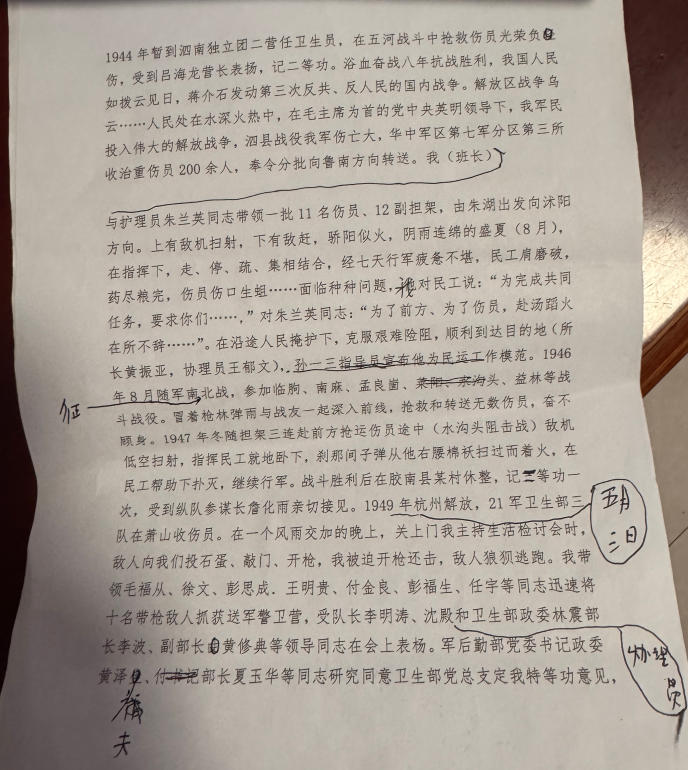 1944 年暂到泗南独立团二营任卫生员，在五河战斗中抢救伤员光荣负
伤，受到吕海龙营长表扬，记二等功。浴血奋战八年抗战胜利，我国人民
如拨云见日，蒋介石发动第三次反共、反人民的国内战争。解放区战争乌
云……人民处在水深火热中，在毛主席为首的党中央英明领导下，我军民
投入伟大的解放战争，泗县战役我军伤亡大，华中军区第七军分区第三所
收治重伤员 200 余人，奉令分批向鲁南方向转送。我（班长）
与护理员朱兰英同志带领一批 11 名伤员、12 副担架，由朱湖出发向沭阳
方向。上有敌机扫射，下有敌赶，骄阳似火，阴雨连绵的盛夏（8 月），
在指挥下，走、停、疏、集相结合，经七天行军疲惫不堪，民工肩磨破，
药尽粮完，伤员伤口生蛆……面临种种问题，我对民工说：“为完成共同
任务，要求你们……，”对朱兰英同志：“为了前方、为了伤员，赴汤蹈火
在所不辞……”。在沿途人民掩护下，克服艰难险阻，顺利到达目的地（所
长黄振亚，协理员王郁文），孙一三指导员宣布他为民运工作模范。1946
年 8 月随军南北战，参加临朐、南麻、孟良崮、莱阳、水沟头、益林等战
征
斗战役。冒着枪林弹雨与战友一起深入前线，抢救和转送无数伤员，奋不
顾身。1947 年冬随担架三连赴前方抢运伤员途中（水沟头阻击战）敌机
低空扫射，指挥民工就地卧下，刹那间子弹从他右腰棉袄扫过而着火，在
民工帮助下扑灭，继续行军。战斗胜利后在胶南县某村休整，记三等功一
次，受到纵队参谋长詹化雨亲切接见。1949 年杭州解放，21 军卫生部三
五月
三日
队在萧山收伤员。在一个风雨交加的晚上，关上门我主持生活检讨会时，
敌人向我们投石蛋、敲门、开枪，我被迫开枪还击，敌人狼狈逃跑。我带
领毛福从、徐文、彭思成．王明贵、付金良、彭福生、任宇等同志迅速将
十名带枪敌人抓获送军警卫营，受队长李明涛、沈殿和卫生部政委林震部
长李波、副部长黄修典等领导同志在会上表杨。军后勤部党委书记政委
协理
员
黄泽、付书记部长夏玉华等同志研究同意卫生部党总支定我特等功意见，
夫